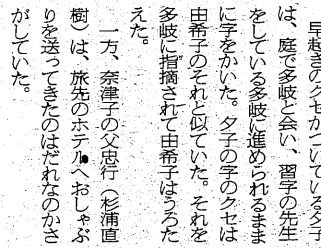 早起きのクセがついている夕子
は、庭で多岐と会い、習字の先生
をしている多岐に進められるまま
に字をかいた。夕子の字のクセは
由希子のそれと似ていた。それを
多岐に指摘されて由希子はうろた
えた。
一方、奈津子の父忠行（杉浦直
樹）は、旅先のホテルへおしゃぶ
りを送ってきたのはだれなのかさ
がしていた。